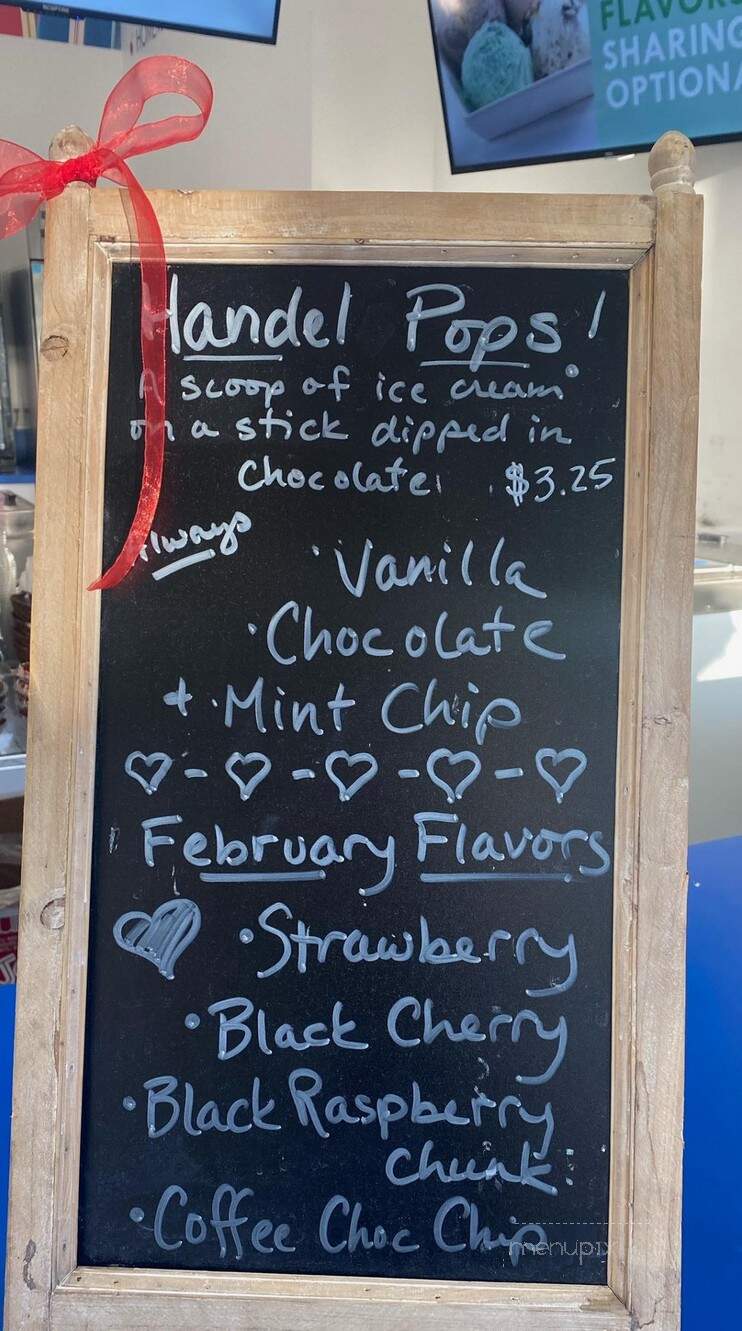 FLAVORS
SHARING
OPTIONA
Handel Pops!
A scoop of ice cream
on a stick dipped in
Chocolate. $3.25
Always
·Vanilla
·Chocolate
+ ·Mint Chip
February Flavors
·Strawberry
·Black Cherry
·Black Raspberry
Chunk
·Coffee Choc Chip
menupix